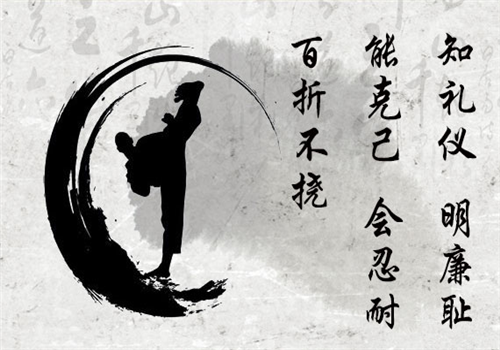 知礼仪 明廉耻
能克己 会忍耐
百折不挠